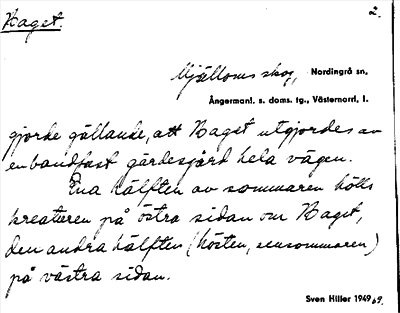 Raget. 2.
Mjälloms skog, Nordingrå sn,
Ångermanl. s. doms. tg., Västernorrl. l.
gjorde gällande, att Raget utgjordes av
en bandfast gärdesgård hela vägen.
Ena hälften av sommaren hölls
kreaturen på östra sidan om Raget,
den andra hälften (hösten, sensommaren)
på västra sidan.
Sven Hiller 1949